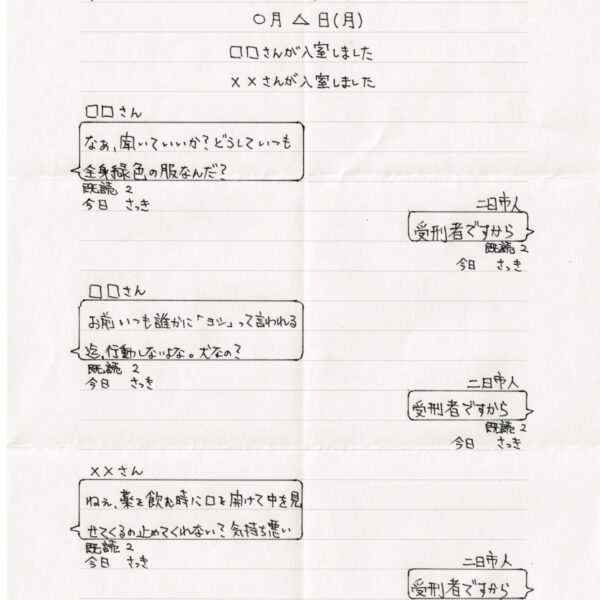 〇月△日(月)
□□さんが入室しました
××さんが入室しました
□□さん
なぁ、聞いていいか?どうしていつも
全身緑色の服なんだ?
既読 2
今日 さっき
二日市人
受刑者ですから
既読 2
今日 さっき
□□さん
お前いつも誰かに「ヨシ」って言われる
迄、行動しないよな。犬なの?
既読 2
今日 さっき
二日市人
受刑者ですから
既読 2
今日 さっき
××さん
ねぇ、薬を飲む時に口を開けて中を見
せてくるの止めてくれない?気持ち悪い
既読 2
今日 さっき
二日市人
受刑者ですから